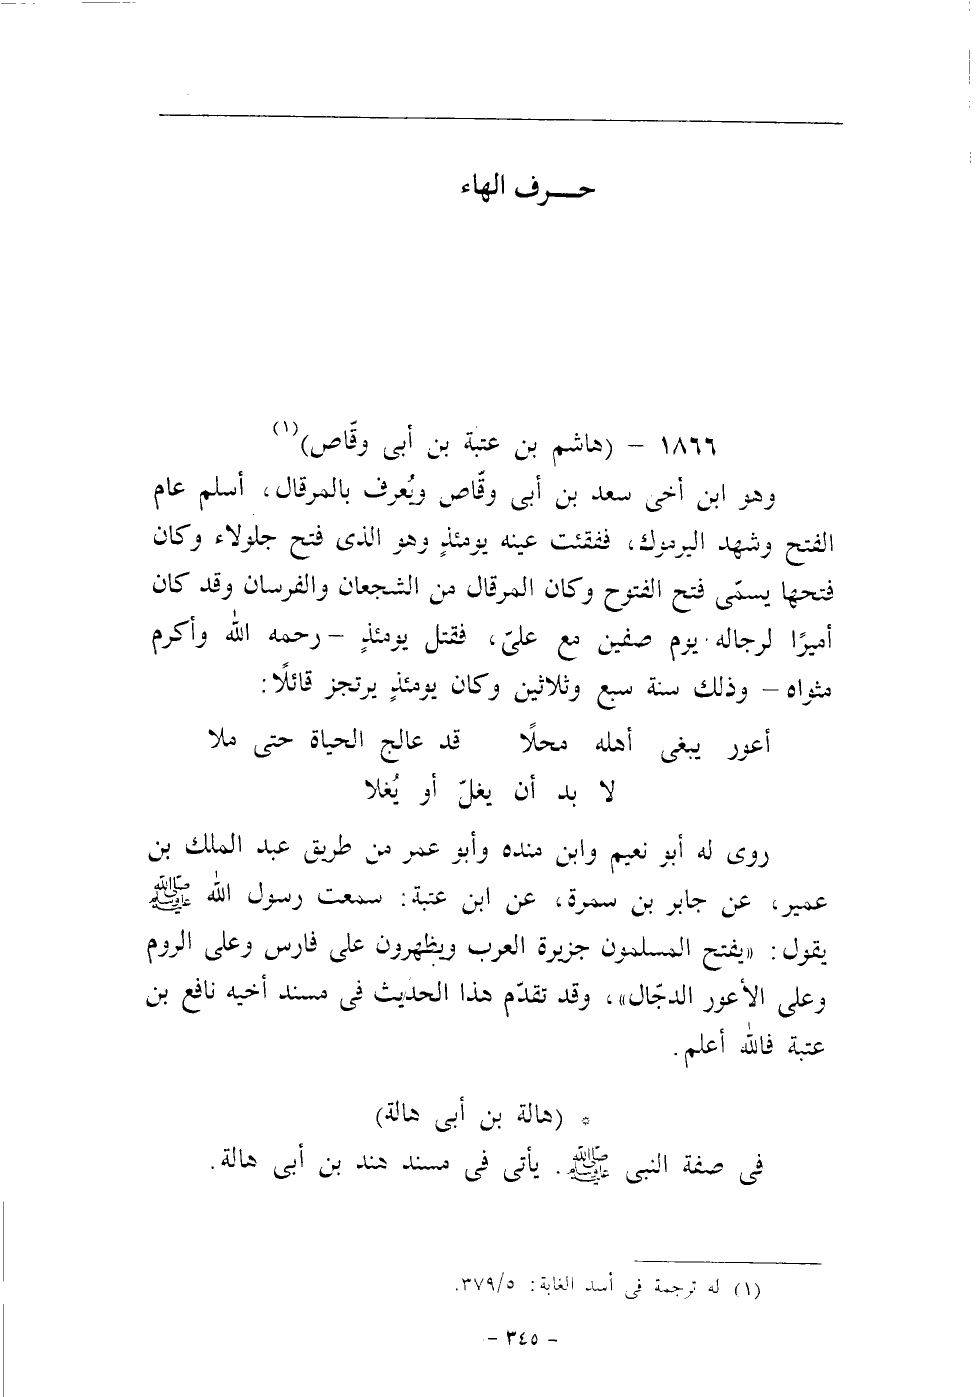 حـــرف الهاء
١٨٦٦ – (هاشم بن عتبة بن أبى وقّاص)(١)
وهو ابن أخى سعد بن أبى وقّاص ويُعرف بالمرقال، أسلم عام
الفتح وشهد اليرموك، ففقئت عينه يومئذٍ وهو الذى فتح جلولاء وكان
فتحها يسمّى فتح الفتوح وكان المرقال من الشجعان والفرسان وقد كان
أميرًا لرجاله يوم صفين مع علىّ، فقتل يومئذٍ – رحمه الله وأكرم
مثواه – وذلك سنة سبع وثلاثين وكان يومئذٍ يرتجز قائلًا:
أعور يبغى أهله محلًا قد عالج الحياة حتى ملا
لا بد أن يغلّ أو يُغلا
روى له أبو نعيم وابن منده وأبو عمر من طريق عبد الملك بن
عمير، عن جابر بن سمرة، عن ابن عتبة: سمعت رسول الله ﷺ
يقول: «يفتح المسلمون جزيرة العرب ويظهرون على فارس وعلى الروم
وعلى الأعور الدجّال»، وقد تقدّم هذا الحديث فى مسند أخيه نافع بن
عتبة فالله أعلم.
* (هالة بن أبى هالة)
فى صفة النبى ﷺ. يأتى فى مسند هند بن أبى هالة.
(١) له ترجمة فى أسد الغابة: ٣٧٩/٥.
– ٣٤٥ –